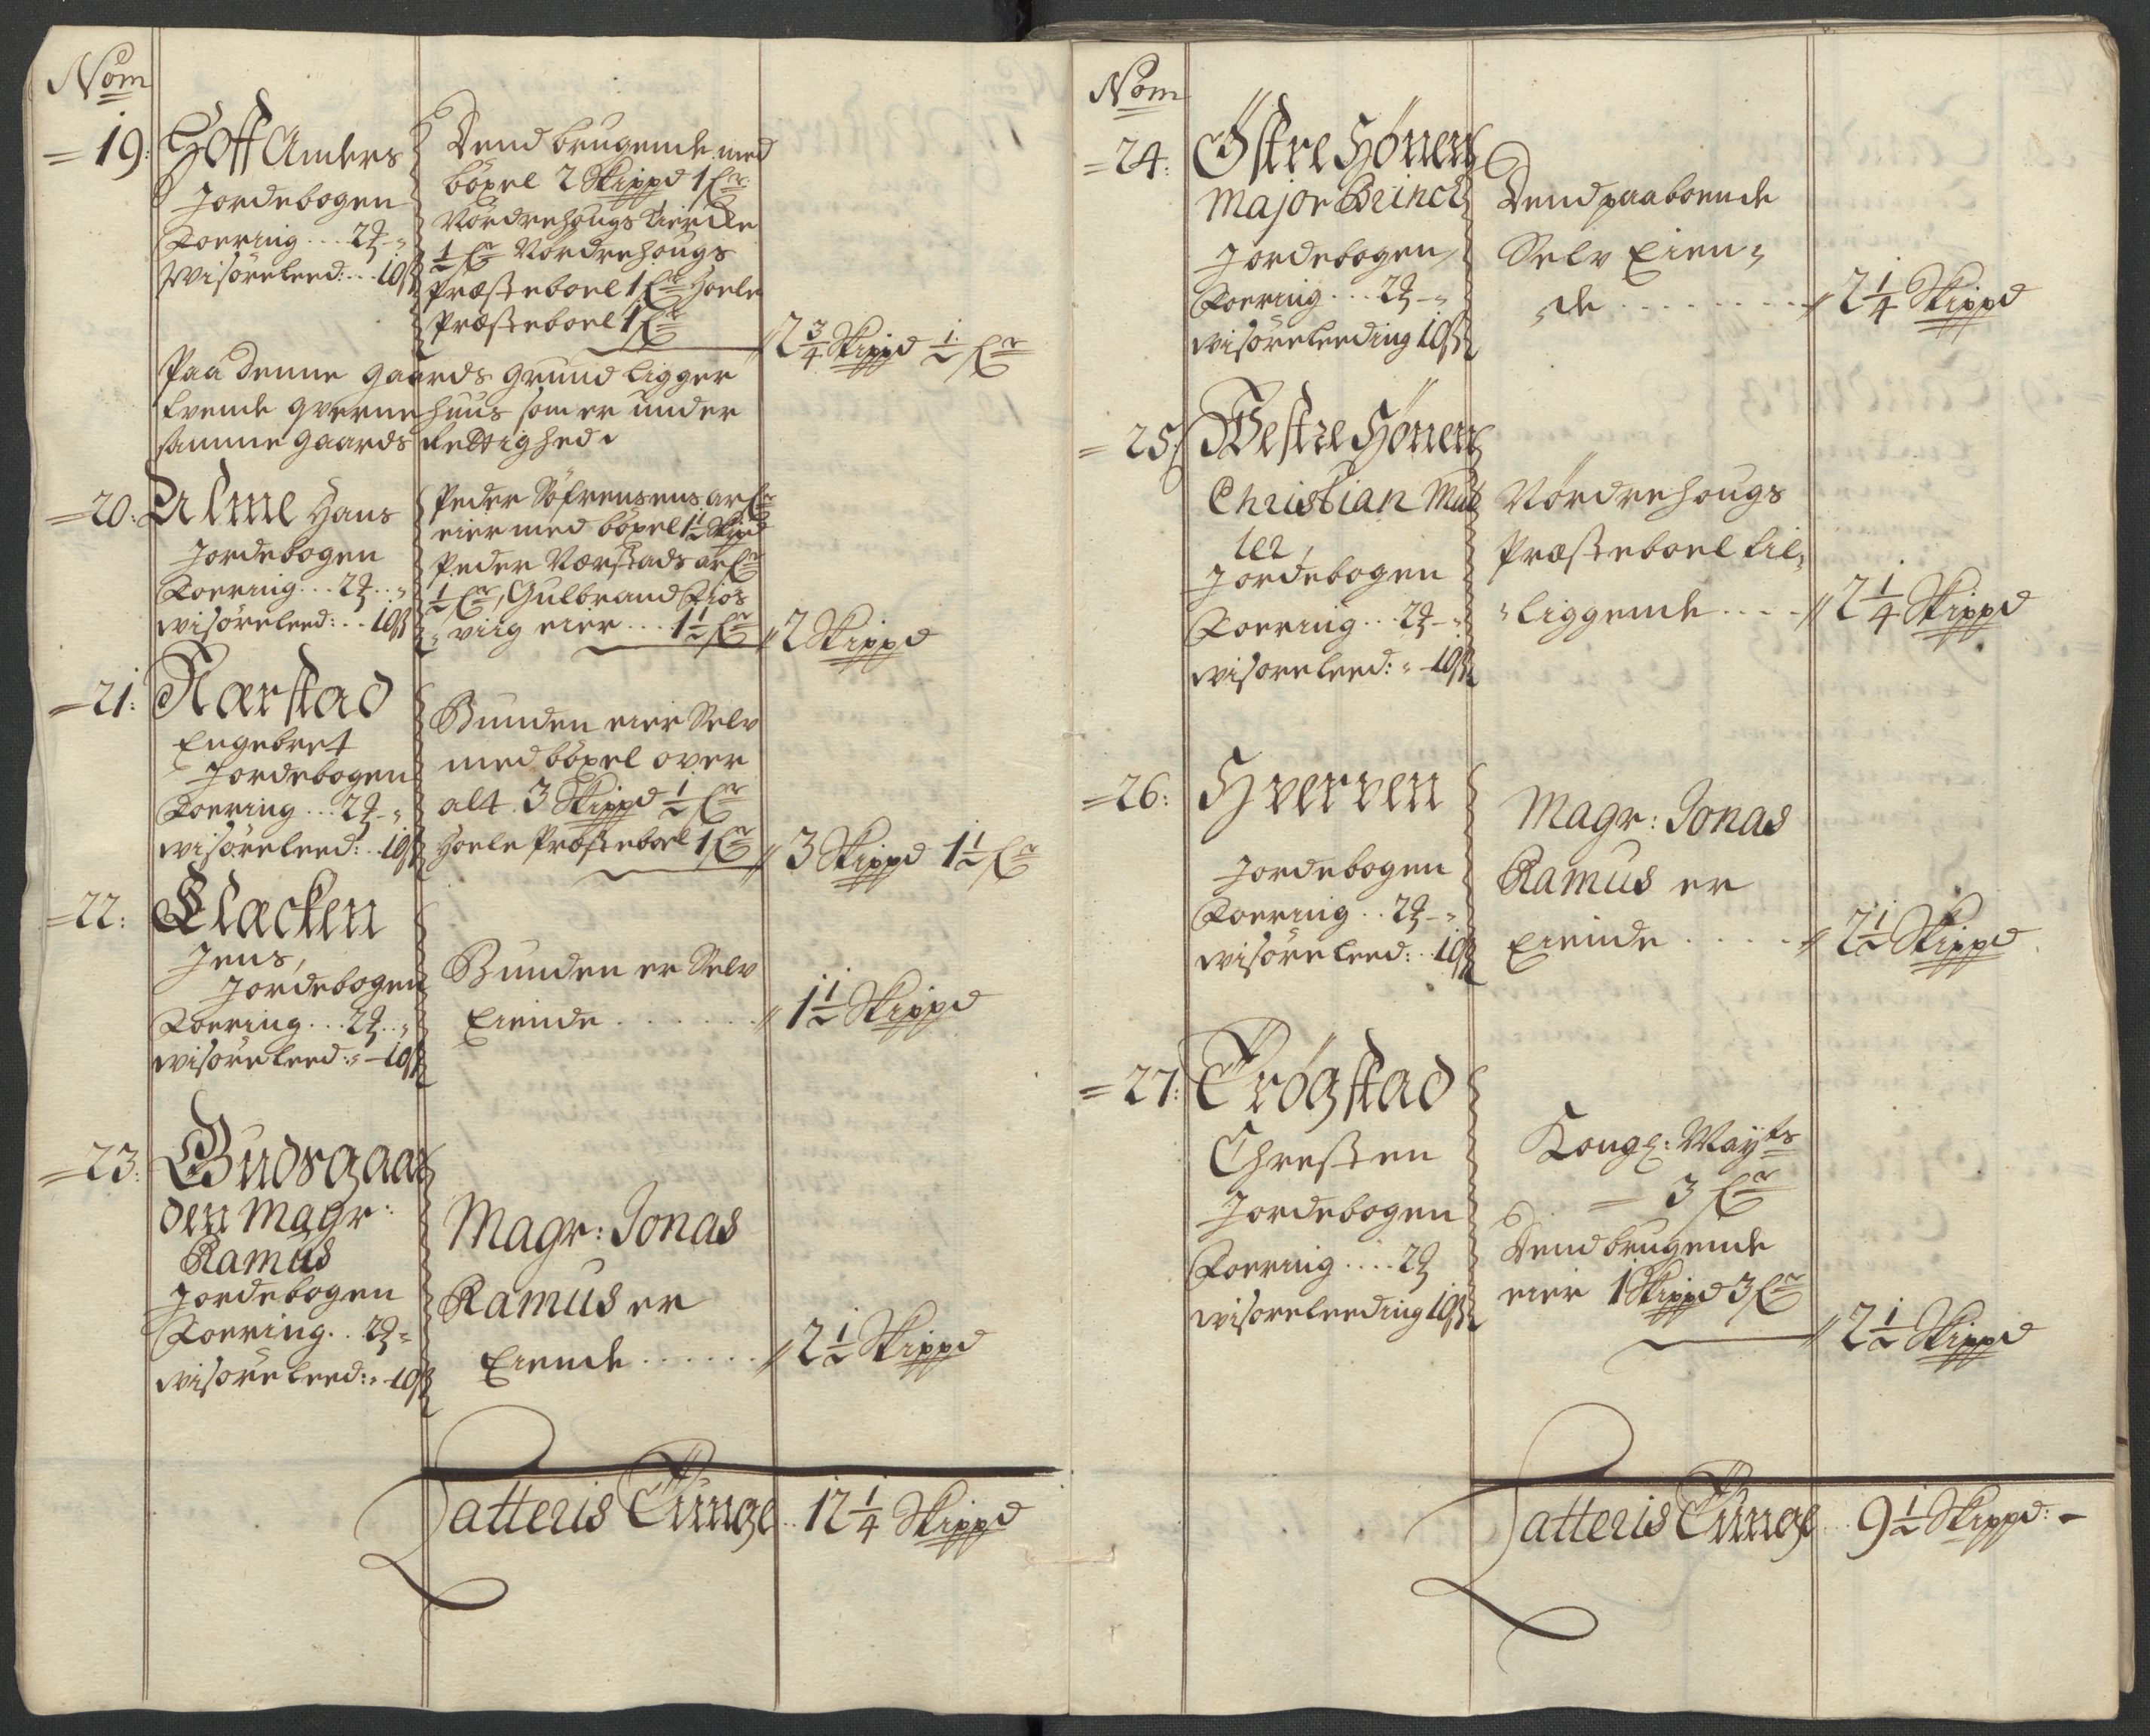 Nom
= 19: Hoff Anders
Jordebogen
Foering ... 2
Wisøreleed: .. 10 ß
Dend brugende med
böxel 2 Skippd 1
Nordrehougs Kierche
Nordrehougs
Præsteboel 1 Hoele
Præsteboel 1
2 3/4 Skippd
Paa denne gaards grund ligger
tvende qvernehuus som er under
samme gaards Rettighed
= 20: Ulme Hans
Jordebogen
Foering ... 2
wisøreleed: .. 10 ß
Peder Söfrensens
eier med böxel 1 1/2 Skippd
Peder Værstads
Gulbrand
viig eier ... 1 1/2
2 Skippd
= 21: Nærstad
Engebret
Jordebogen
Foering ... 2
wisøreleed: .. 10 ß
Bunden eier Selv
med böxel over
alt 3 Skippd 1/2
Hoele Præsteboel 1
3 Skippd 1 1/2
= 22: Klæcken
Jens,
Jordebogen
Foering ... 2
wisøreleed: - 10 ß
Bunden er Selv
Eiende ......
1 1/2 Skippd
= 23: Gudsgaar
den Magr:
Ramus
Jordebogen
Foering .. 2
wisøreleed: - 10 ß
Magr: Jonas
Ramus er
Eiende ......
2 1/2 Skippd
Latteris Tunge .. 12 1/4 Skippd
Nom
= 24: Östre Hönen
Major Brinck
Jordebogen
Foering ... 2
wisøreleeding 10 ß
Dend paaboende
Selv Eien„
„de ........
2 1/4 Skippd
= 25: Westre Hönen
Christian Mül
ler,
Jordebogen
Foering ... 2
wisøreleed: - 10 ß
Nordrehougs
Præsteboel til„
„liggende ....
2 1/4 Skippd
= 26: Hverven
Jordebogen
Foering .. 2
wisøreleed: .. 10 ß
Magr: Jonas
Ramus er
Eiende .....
2 1/2 Skippd
= 27: Trögstad
Chresten
Jordebogen
Foering .... 2
wisøreleeding 10 ß
Kongl: Mayts
= 3
Dend brugende
eier 1 Skippd 3
2 1/2 Skippd
Latteris Tunge .. 9 1/2 Skippd: -